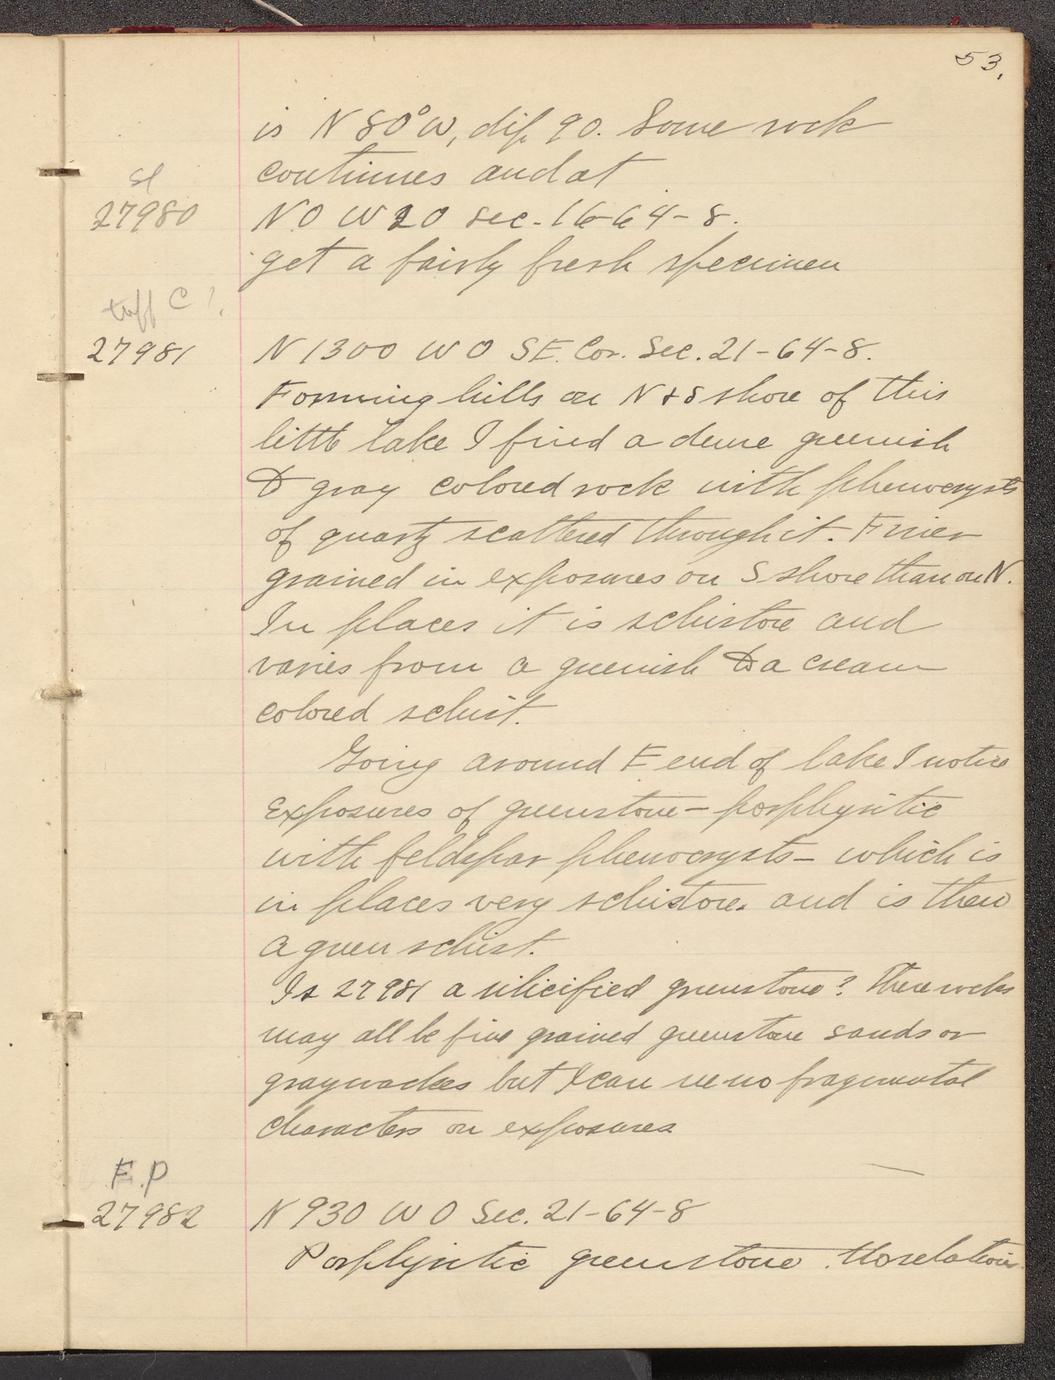 53.
is N 80° W, dip 90. Same rock
continues and at
sl
27980 N 0 W 20 Sec. 16-64-8.
get a fairly fresh specimen
tuff C ?.
27981 N 1300 W 0 SE. Cor. Sec. 21-64-8.
Forming hills on N & S shore of this
little lake I find a dense greenish
to gray colored rock with phenocrysts
of quartz scattered through it. Finer
grained in exposures on S shore than on N.
In places it is schistose and
varies from a greenish to a cream
colored schist.
Going around E end of lake I notice
exposures of greenstone - porphyritic
with feldspar phenocrysts - which is
in places very schistose and is then
a green schist.
Is 27981 a silicified greenstone? These rocks
may all be fine grained greenstone sands or
graywackes but I can see no fragmental
characters on exposures
E.P
27982 N 930 W 0 Sec. 21-64-8
Porphyritic greenstone. No relations